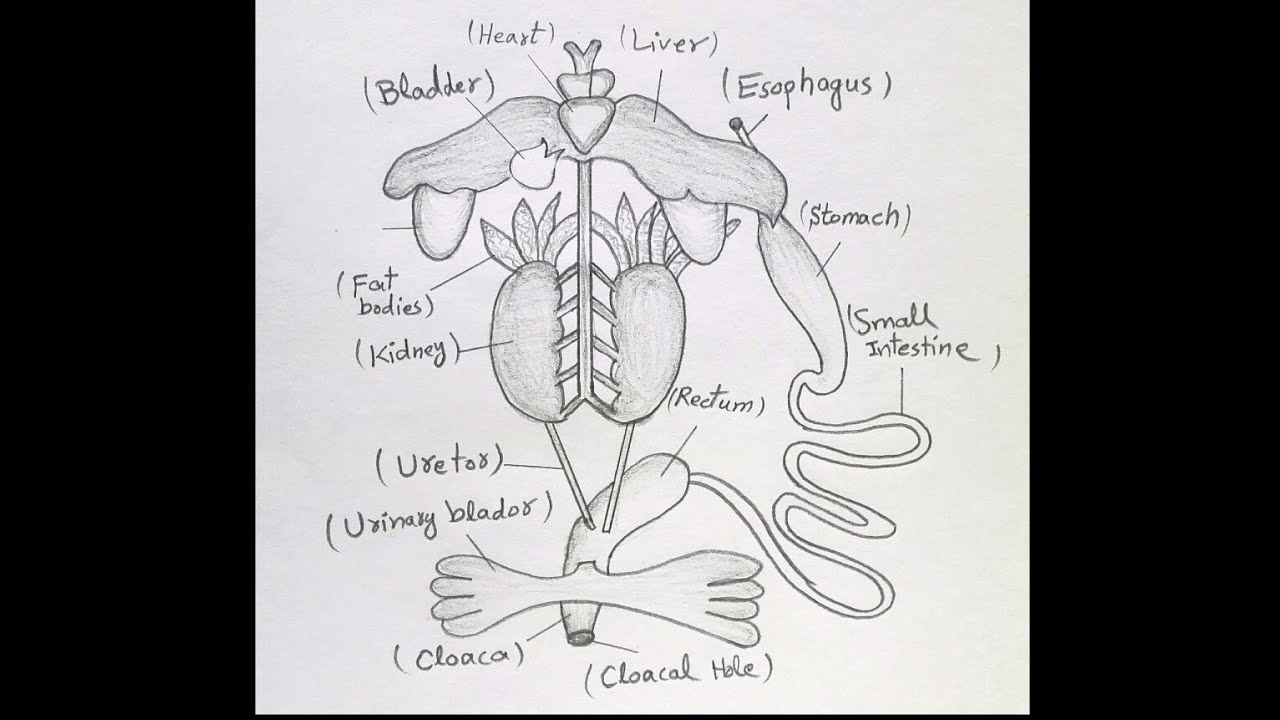 (Heart)
(Liver)
(Bladder)
(Esophagus)
(Stomach)
(Fat
bodies)
(Small
Intestine)
(Kidney)
(Rectum)
(Uretor)
(Urinary blador)
(Cloaca)
(Cloacal Hole)